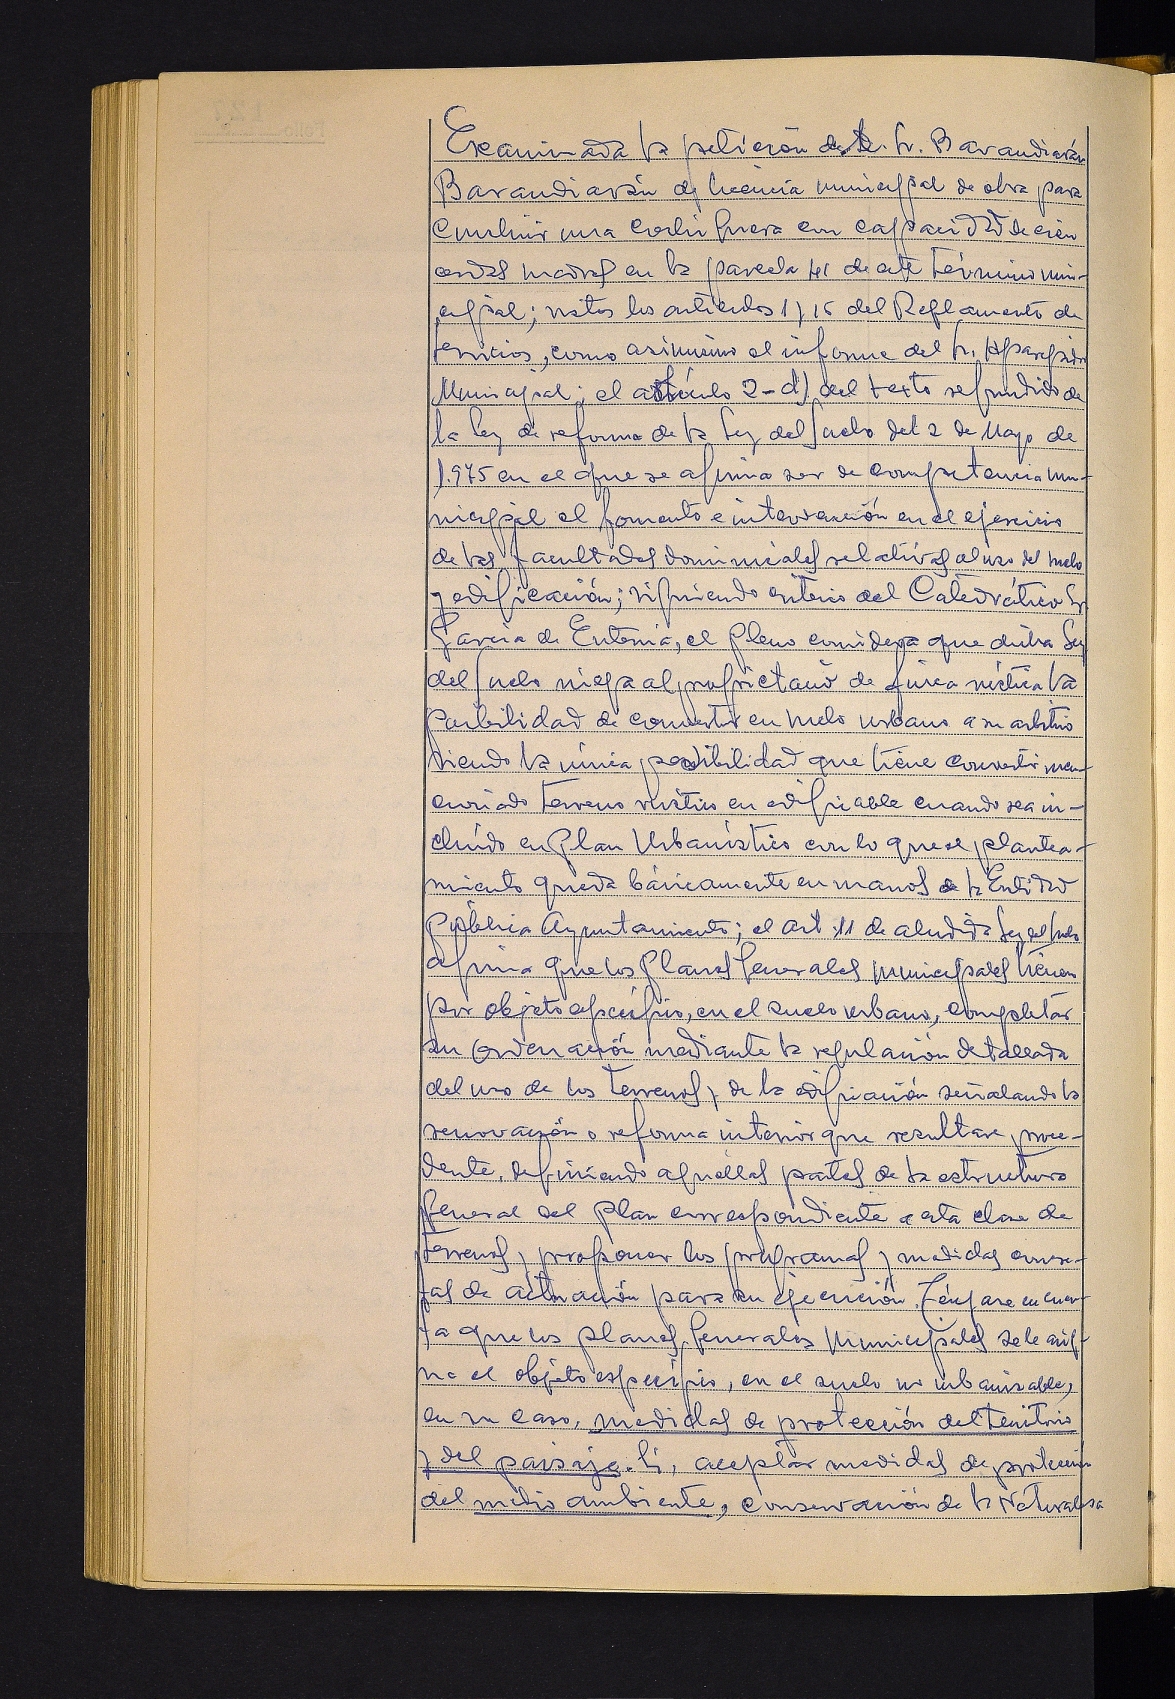 Examinada la petición de Sr. Barandiarán
Barandiarán de licencia municipal de obra para
construir una cochiquera con capacidad de cien
cerdas madres en la parcela 41 de este término mun-
cipal; vistos los artículos 1 y 15 del Reglamento de
Servicios, como asimismo el informe del Sr. Aparejador
Municipal; el artículo 2-d) del texto refundido de
la Ley de reforma de la Ley del Suelo del 2 de Mayo de
1.975 en el que se afirma ser de competencia mu-
nicipal el fomento e intervención en el ejercicio
de las facultades dominicales relativas al uso del suelo
y edificación; siguiendo criterio del Catedrático Sr.
García de Enterría, el Pleno considera que dicha Ley
del Suelo niega al propietario de finca rústica la
posibilidad de convertir en suelo urbano a su arbitrio
siendo la única posibilidad que tiene convertir men-
cionado terreno rústico en edificable cuando sea in-
cluído en Plan Urbanístico con lo que el plantea-
miento queda básicamente en manos de la Entidad
Pública Ayuntamiento; el art. 11 de aludida Ley del Suelo
afirma que los Planes Generales municipales tienen
por objeto específico, en el suelo urbano, completar
su ordenación mediante la regulación detallada
del uso de los terrenos y de la edificación señalando la
renovación o reforma interior que resultare proce-
dente, definiendo aquellas partes de la estructura
General del Plan correspondiente a esta clase de
terrenos y proponer los programas y medidas concre-
tas de actuación para su ejecución. Téngase en cuen-
ta que los planes Generales Municipales se le asig-
na el objeto específico, en el suelo no urbanizable,
en su caso, medidas de protección del territorio
y del paisaje. Si, aceptar medidas de protección
del medio ambiente, conservación de la Naturaleza